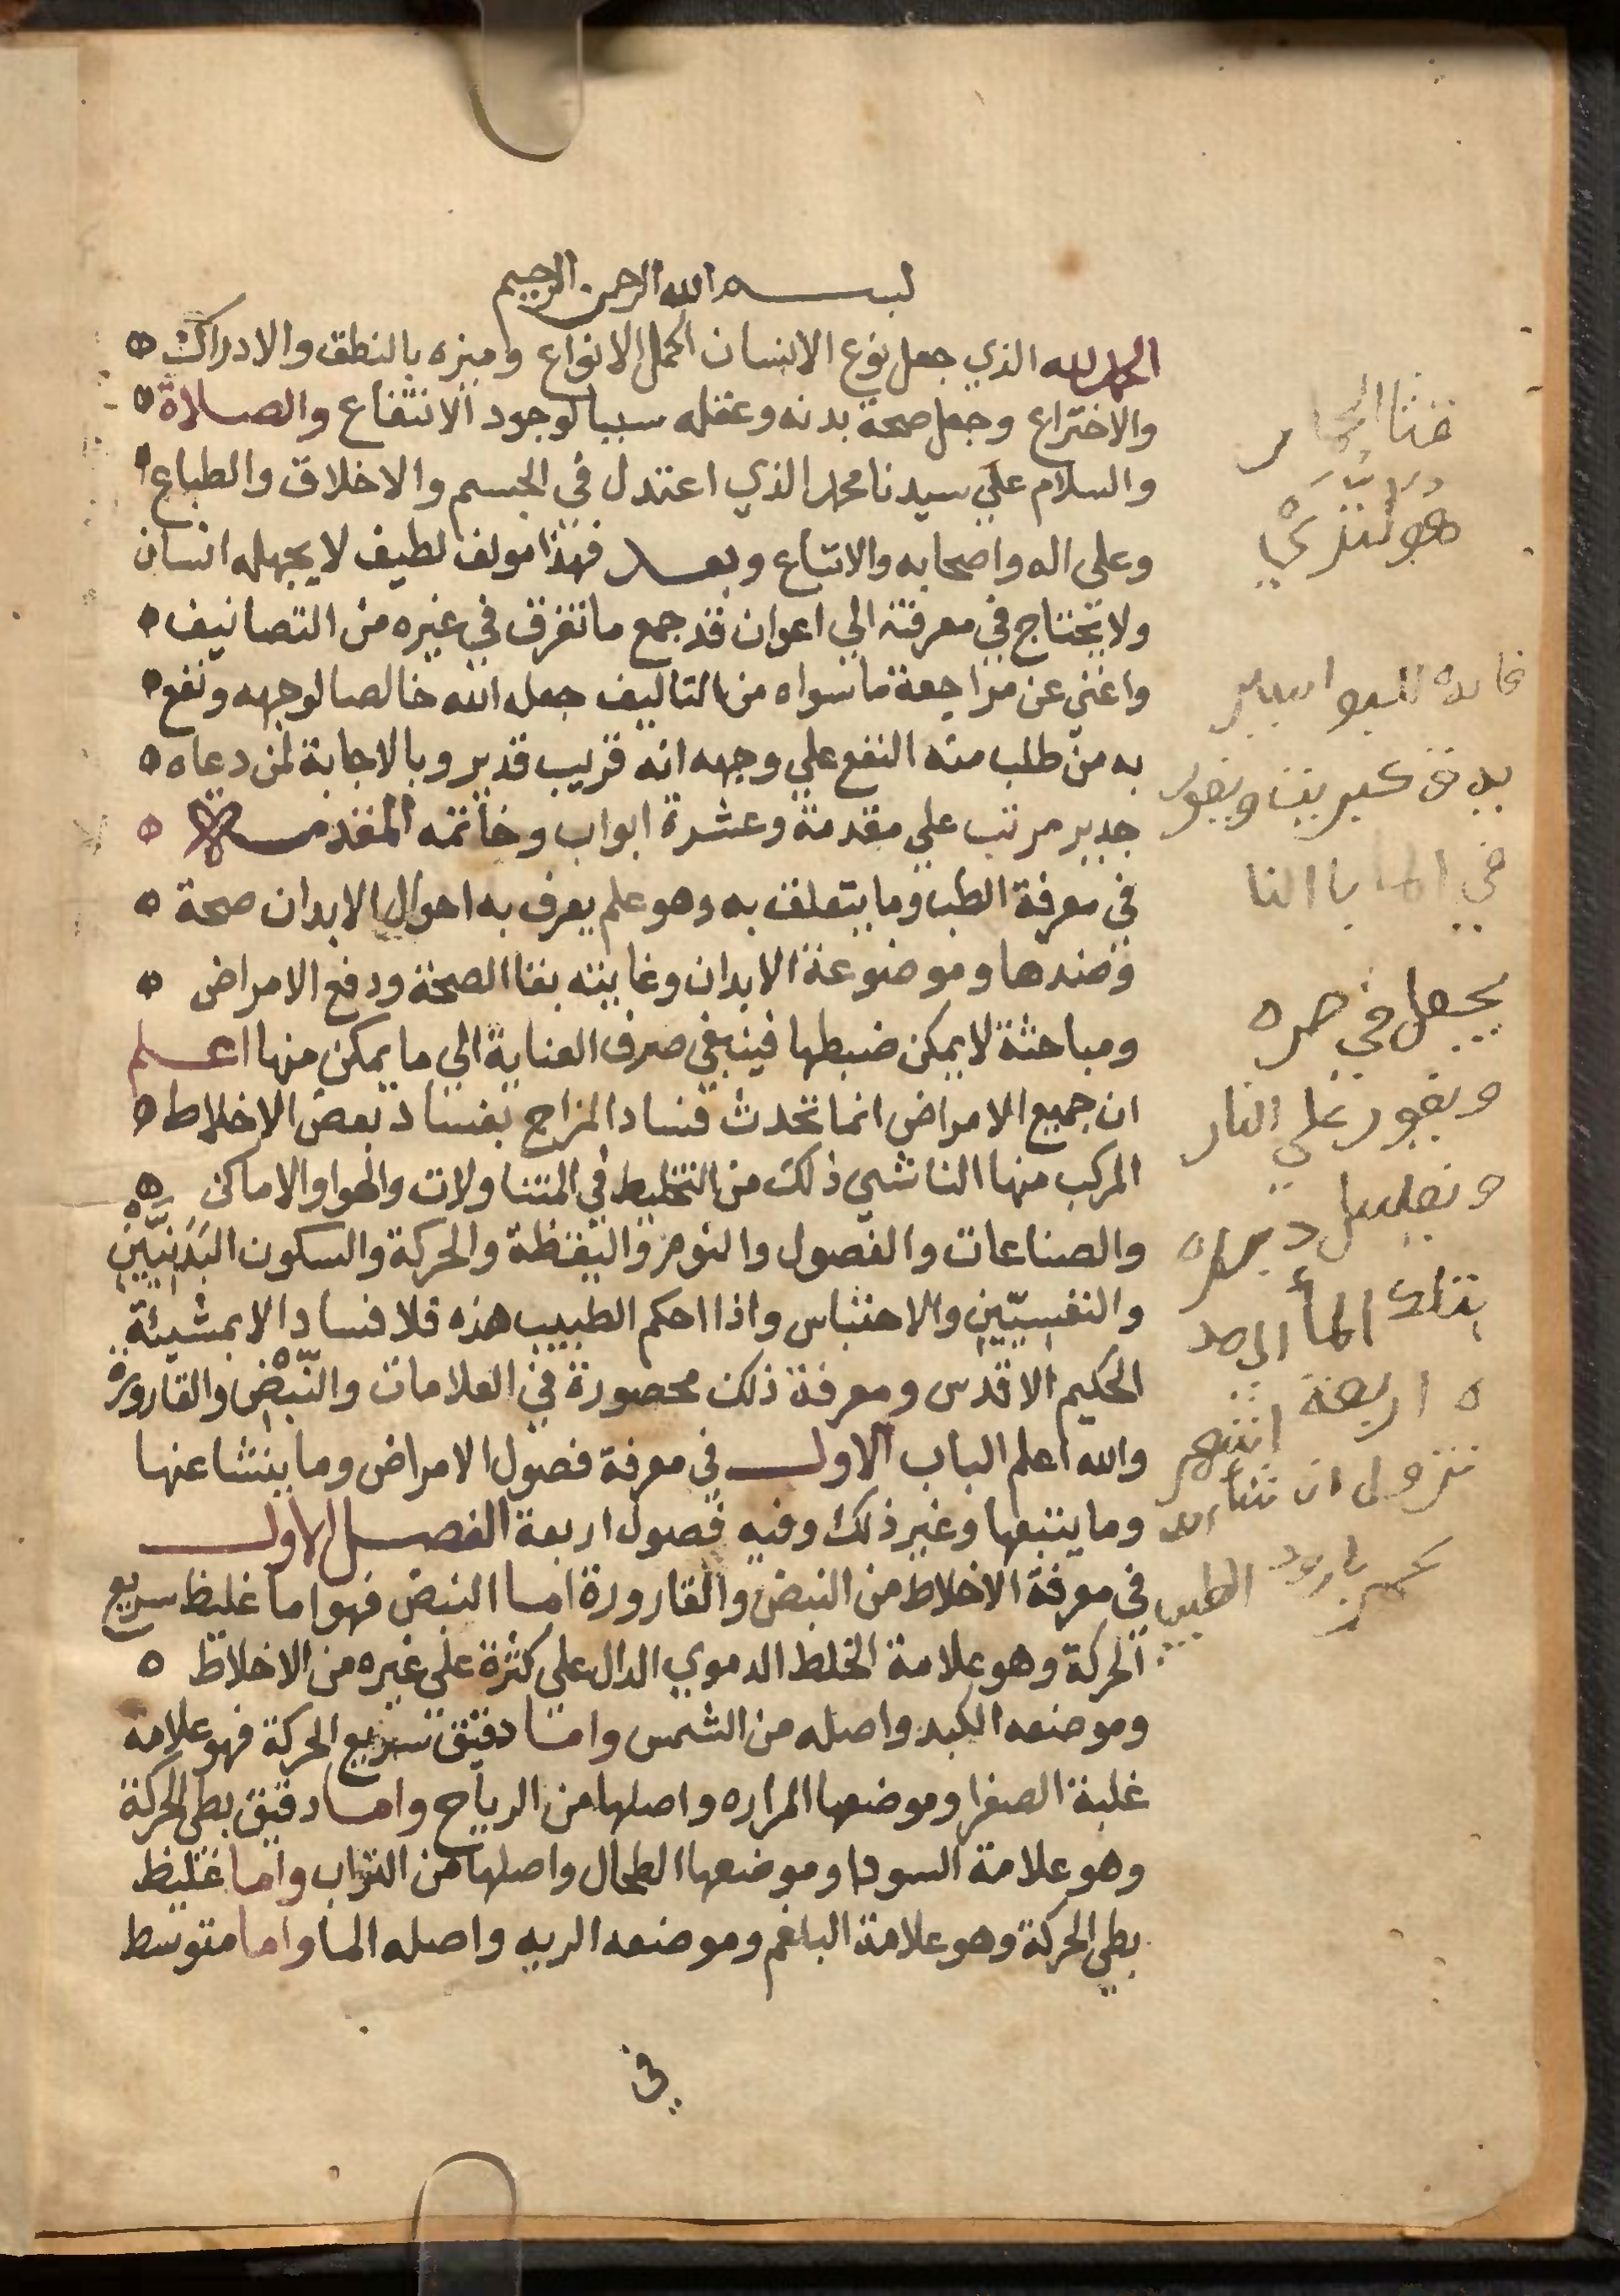 بسم الله الرحمن الرحيم
الحمد لله الذي جعل نوع الانسان اكمل الانواع وميزه بالنطق والادراك
والاختراع وجعل صحة بدنه وعقله سببا لوجود الانتفاع والصلاة
والسلام علي سيدنا محمد الذي اعتدل في الجسم والاخلاق والطباع
وعلي اله واصحابه والاتباع وبعد فهذا مولف لطيف لا يجهله انسان
ولا يحتاج في معرفته الي اعوان قد جمع ما تفرق في غيره من التصانيف
واغني عن مراجعة ما سواه من التاليف جعله الله خالصا لوجهه ونفع
به من طلب منه النفع علي وجهه انه قريب قدير وبالاجابة لمن دعاه
جدير مرتب علي مقدمة وعشرة ابواب وخاتمه المقدمة
في معرفة الطب وما يتعلق به وهو علم يعرف به احوال الابدان صحة
وضدها وموضوعة الابدان وغايته بقا الصحة ودفع الامراض
ومباحثة لا يمكن ضبطها فينبغي صرف العناية الي ما يمكن منها اعلم
ان جميع الامراض انما تحدث فساد المزاج بفساد بعض الاخلاط
المركب منها الناشي ذلك من التخليط في المتناولات والهوا والاماكن
والصناعات والفصول والنوم واليقظة والحركة والسكون البَدَنِيّين
والنفسِيّين والاحتباس واذا احكم الطبيب هذه فلا فساد الا بمشيئة
الحكيم الاقدس ومعرفة ذلك محصورة في العلامات والنّبض والقارورة
والله اعلم الباب الاول في معرفة فصول الامراض وما ينشا عنها
وما يتبعها وغير ذلك وفيه فصول اربعة الفصل الاول
في معرفة الاخلاط من النبض والقارورة اما النبض فهو اما غليظ سريع
الحركة وهو علامة الخلط الدموي الدال علي كثرة علي غيره من الاخلاط
وموضعه الكبد واصله من الشمس واما دقيق سريع الحركة فهو علامة
غلبة الصفرا وموضعها المراره واصلها من الرياح واما دقيق بطي الحركة
وهو علامة السودا وموضعها الطحال واصلها من التراب واما غليظ
بطي الحركة وهو علامة البلغم وموضعه الريه واصله الما واما متوسط
في
يجعل في صره
علي النار
بذلك الما
اربعة